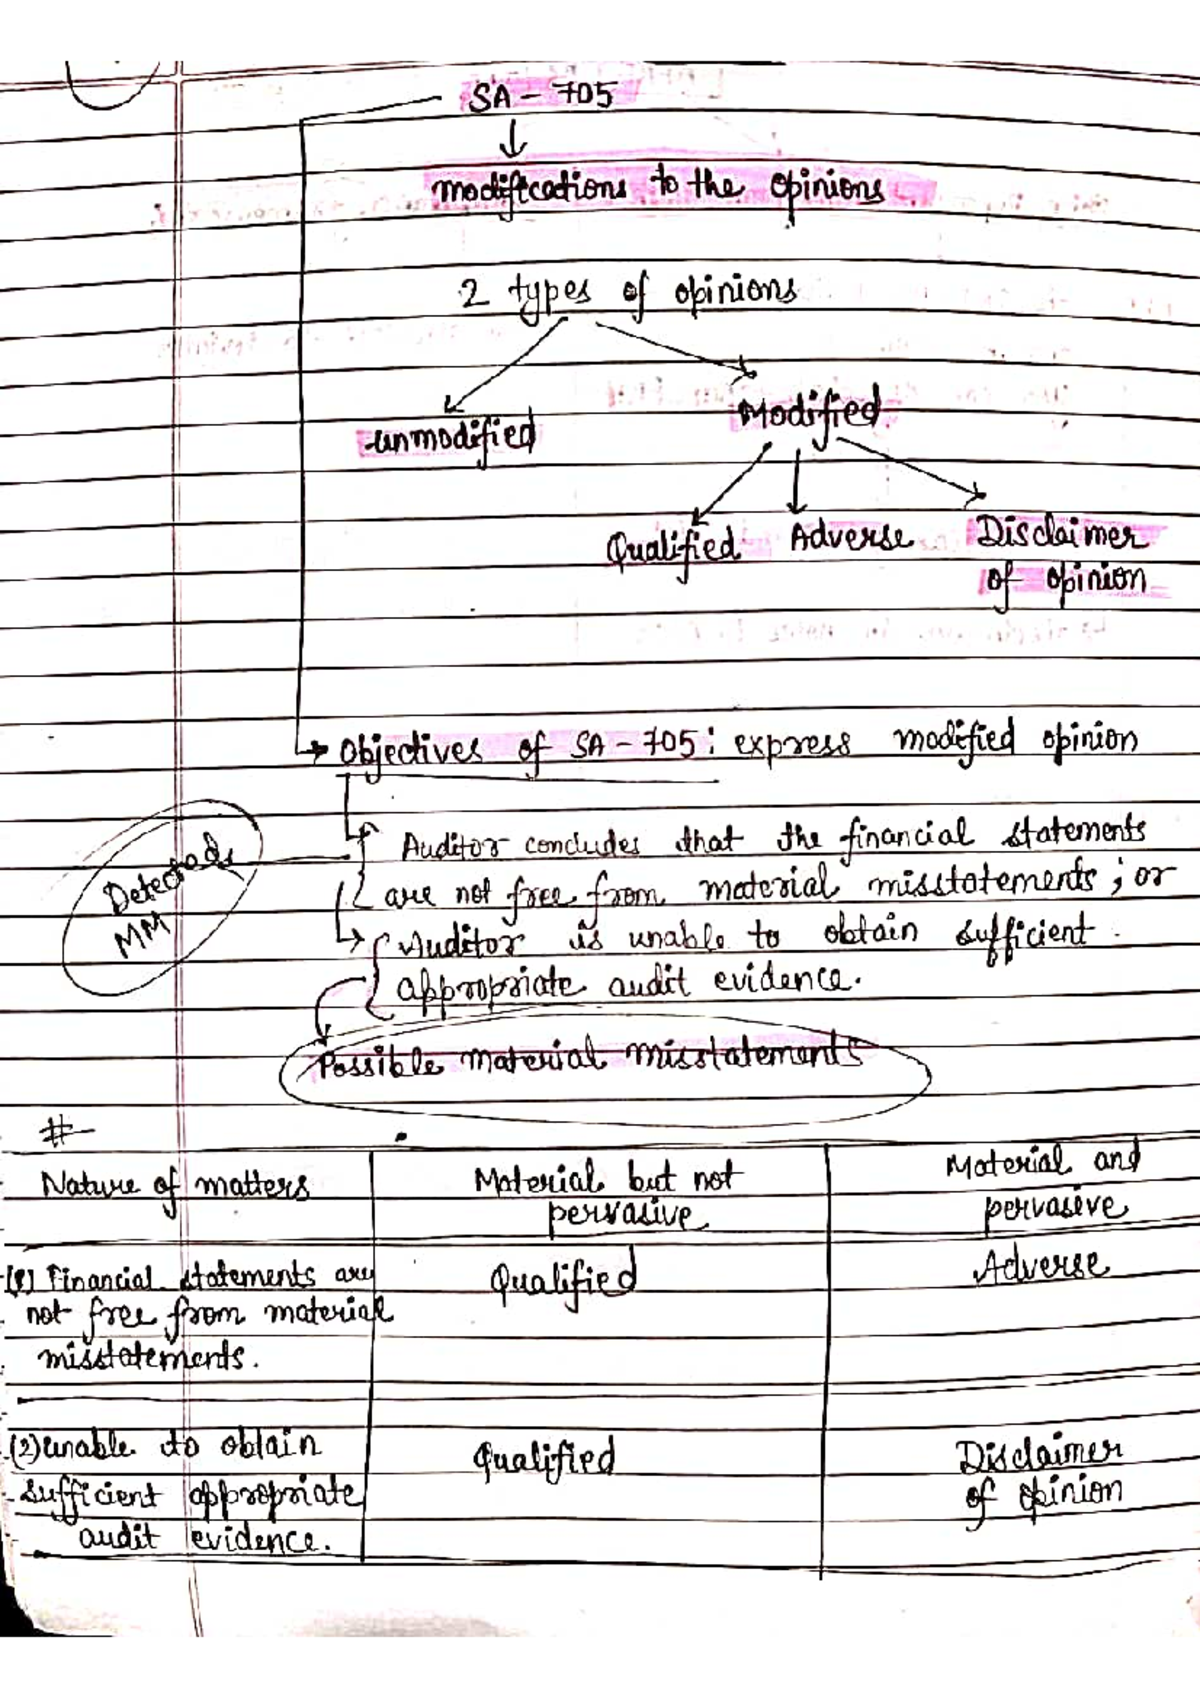 SA - 705
modifications to the opinions
2 types of opinions
unmodified
Modified
Qualified Adverse Disclaimer
of opinion
Objectives of SA - 705 : express modified opinion
Auditor concludes that the financial statements
are not free from material misstatements ; or
Detected
MM
Auditor is unable to obtain sufficient
appropriate audit evidence.
Possible material misstatements
#
Nature of matters
Material but not
pervasive
Material and
pervasive
(1) Financial statements are
not free from material
misstatements.
Qualified
Adverse
(2) unable to obtain
sufficient appropriate
audit evidence.
Qualified
Disclaimer
of opinion